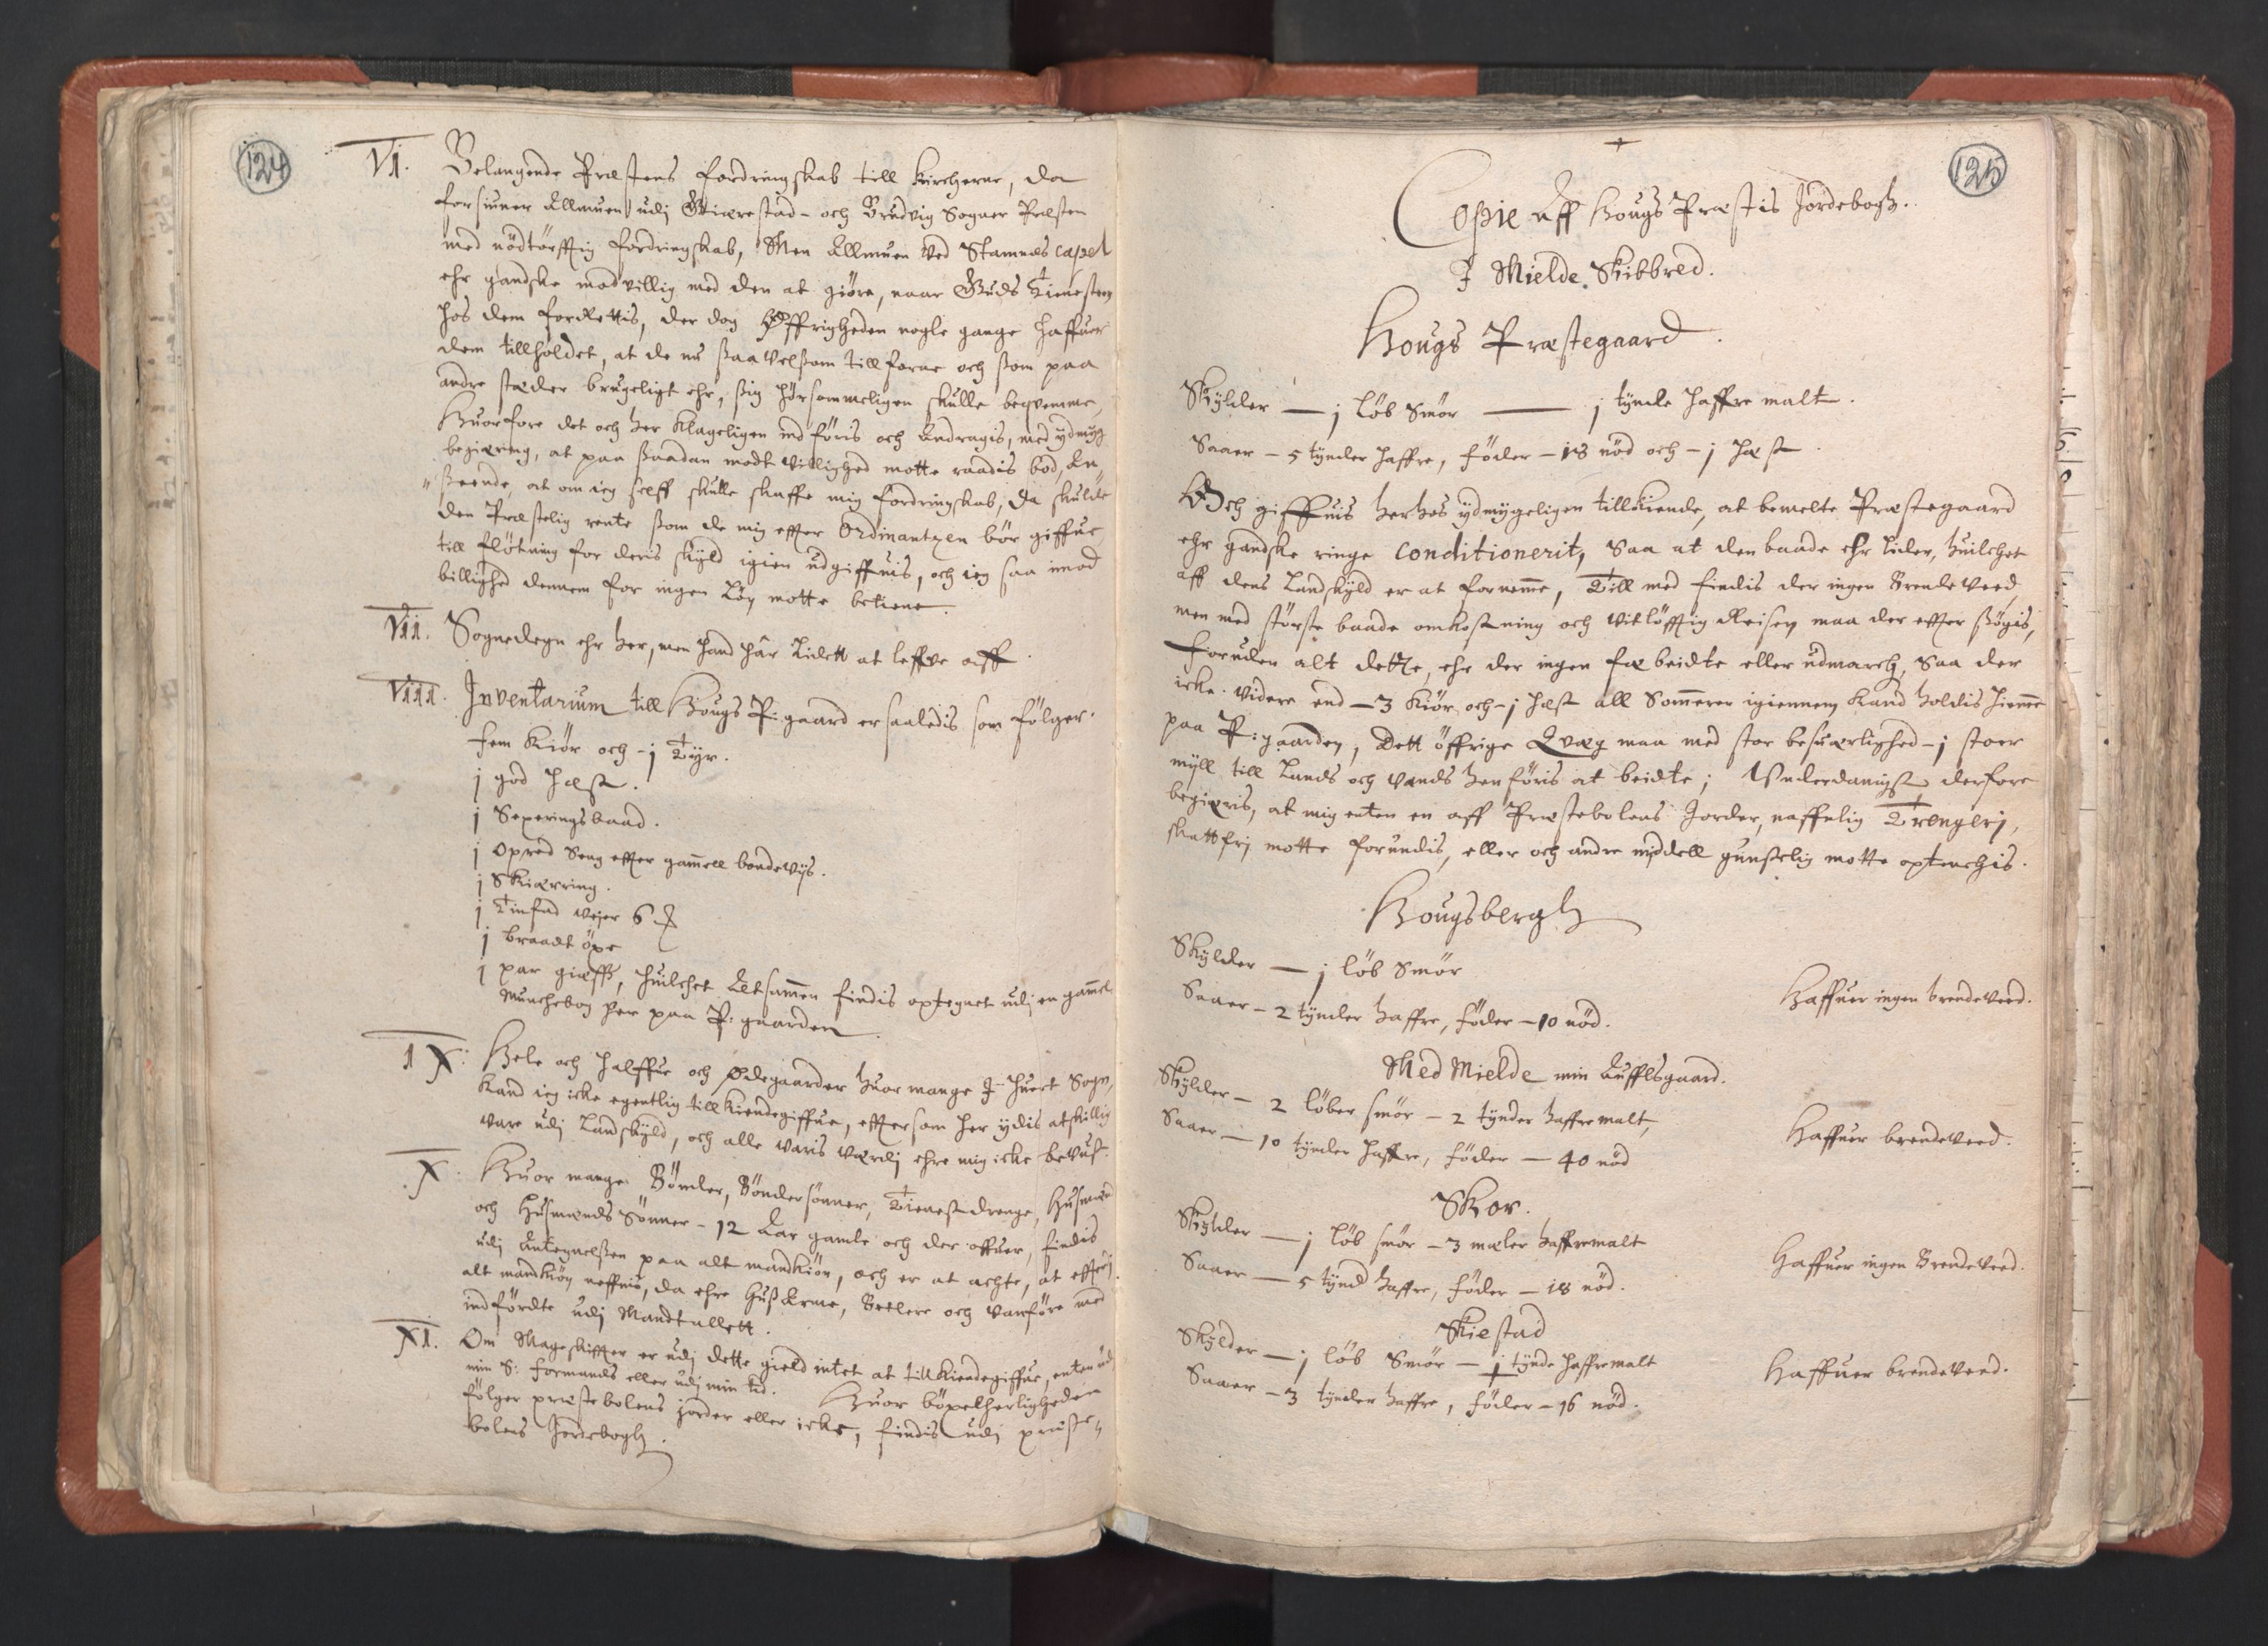 124
VI. Belangende Præstens fordringskab till Kircherne, da
forsiuner Allmuen udj Giærestad- och Brudvig Sogner Præsten
med nödtörfftig fordringskab, Men Allmuen Ved Stamnæs capel
ehr gandske modvillig med den at giöre, naar Guds Tienesten
hos dem forRettis, der dog Öffrigheden nogle gange haffuer
dem tillholdet, at de nu ßaavelßom tillforne och ßom paa
andre stæder brugeligt ehr, sig hörsommeligen skulle beqvemme,
Huorfore det och her klageligen indföris och Andragis, med ydmyg
begiæring, at paa ßaadan modtvillighed motte raadis bod, An,,
,,ßeende, at om ieg selff skulle skaffe mig fordringskab, da skulde
den Præstelig rente ßom de mig effter Ordinantzen bör giffue
till flötning for deris skyld igien udgiffuis, och ieg saa imod
billighed dennem for ingen Lön motte betiene.
VII. Sognedegn ehr her, men hand hâr Lidett at leffve aff.
VIII. Inventarium till Hougs P: gaard er saaledis som fölger.
Fem Kiör och - j Tyr.
j god Hæst.
j Sexeringsbaad.
j Opred Seng effter gammell bondevÿs.
j Skiærring.
j Tinfad vejer 6 ℔
j braadt öxe
j par giæff, huilchet Altsammen findis optegnet udj en gammel
Munchebog her paa P: gaarden.
IX: Hele och halffue och Ödegaarder huor mange J huert Sogn,
Kand ieg icke egentlig tillKiendegiffue, effterßom her ydis atskillig
vare udj Landskyld, och alle varis værdj ehre mig icke bevust.
X: Huor mange Bönder, Böndersönner, Tienestdrenge, Husmænd
och Husmænds Sönner - 12 Aar gamle och der offuer, findis
udj Antegnelßen paa alt mandkiön, och er at achte, at effterj
alt mandkiön neffnis, da ehre Huß Arme, Betlere och vanföre med
indfördte udj Mandtallett.
XI. Om Mageskiffter er udj dette gield intet at tillkiendegiffue, enten udj
min S: Formands eller udj min tid. Huor böxelherligheden
fölger præstebolens jorder eller icke, findis udj præste,,
bolens Jordebogh.
125
Copie Aff Hougs Præstis Jordebogh.
J Mielde Skibbred.
Hougs Præstegaard.
Skylder — j Löb Smör — j tynde haffre malt.
Saaer - 5 tynder haffre, föder - 18 nöd och - j Hæst.
Och giffuis herhos ydmygeligen tillkiende, at bemelte Præstegaard
ehr gandske ringe conditionerit, Saa at den baade ehr Liden, huilchet
aff dens Landskyld er at fornemme, Till med findis der ingen Brendeveed,
men med störste baade omkostning och vitlöfftig Reisen maa der effter ßögis,
Foruden alt dette, ehr der ingen fæbeidte eller udmarch, saa der
icke videre end - 3 Kiör och - j hæst all Sommeren igiennem kand holdis hiemme
paa P: gaarden, Dett öffrige Qvæg maa med stor besuærlighed - j stoer
mÿll till Lands och vands henföris at beidte; Underdanigst derfore
begiæris, at mig enten en aff Præstebolens Jorder, naffnlig Trengerj,
skattfrj motte forundis, eller och andre middell gunstelig motte optenchis.
Hougsbergh
Skylder — j löb Smör
Saaer - 2 tynder haffre, föder - 10 nöd.
Haffuer ingen brendeveed.
Med Mielde min Aufflsgaard.
Skylder - 2 löber smör - 2 tynder haffremalt,
Saaer — 10 tynder haffre, föder — 40 nöd
Haffuer brendeveed.
Skor.
Skylder — j löb smör - 3 mæler haffremalt
Saaer — 5 tynd haffre, föder - 18 nöd.
Haffuer ingen Brendeveed.
Skiestad
Skylder — j löb Smör — j tynde haffremalt
Saaer - 3 tynder haffre, föder - 16 nöd.
Haffuer brendeveed.